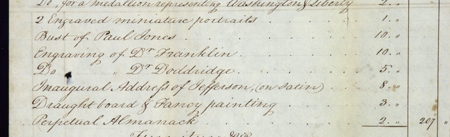 Do, for a medallion representing Washington & Liberty . . 2 " "
2 Engraved miniature portraits . . . . 1 " "
Bust of Paul Jones . . . . 10 " "
Engraving of Dr Franklin . . . . 10 " "
Do " Dr Doddridge . . . . 5 " "
Inaugural Address of Jefferson, (on Satin) . . . 8 " "
Draught board & Fancy painting . . . . 3 " "
Perpetual Almanack . . . . 2 " " 207 "